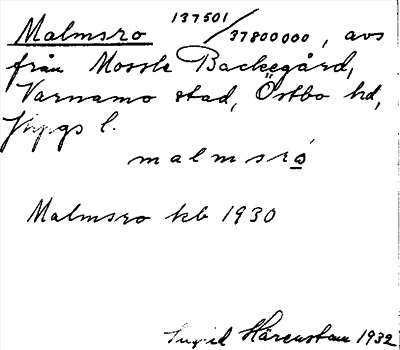 Malmsro 137501/37800000, avs
från Mossle Backegård,
Värnamo stad, Östbo hd,
Jkpgs l.
malmsró
Malmsro kb 1930
Ingrid Hårenstam 1932